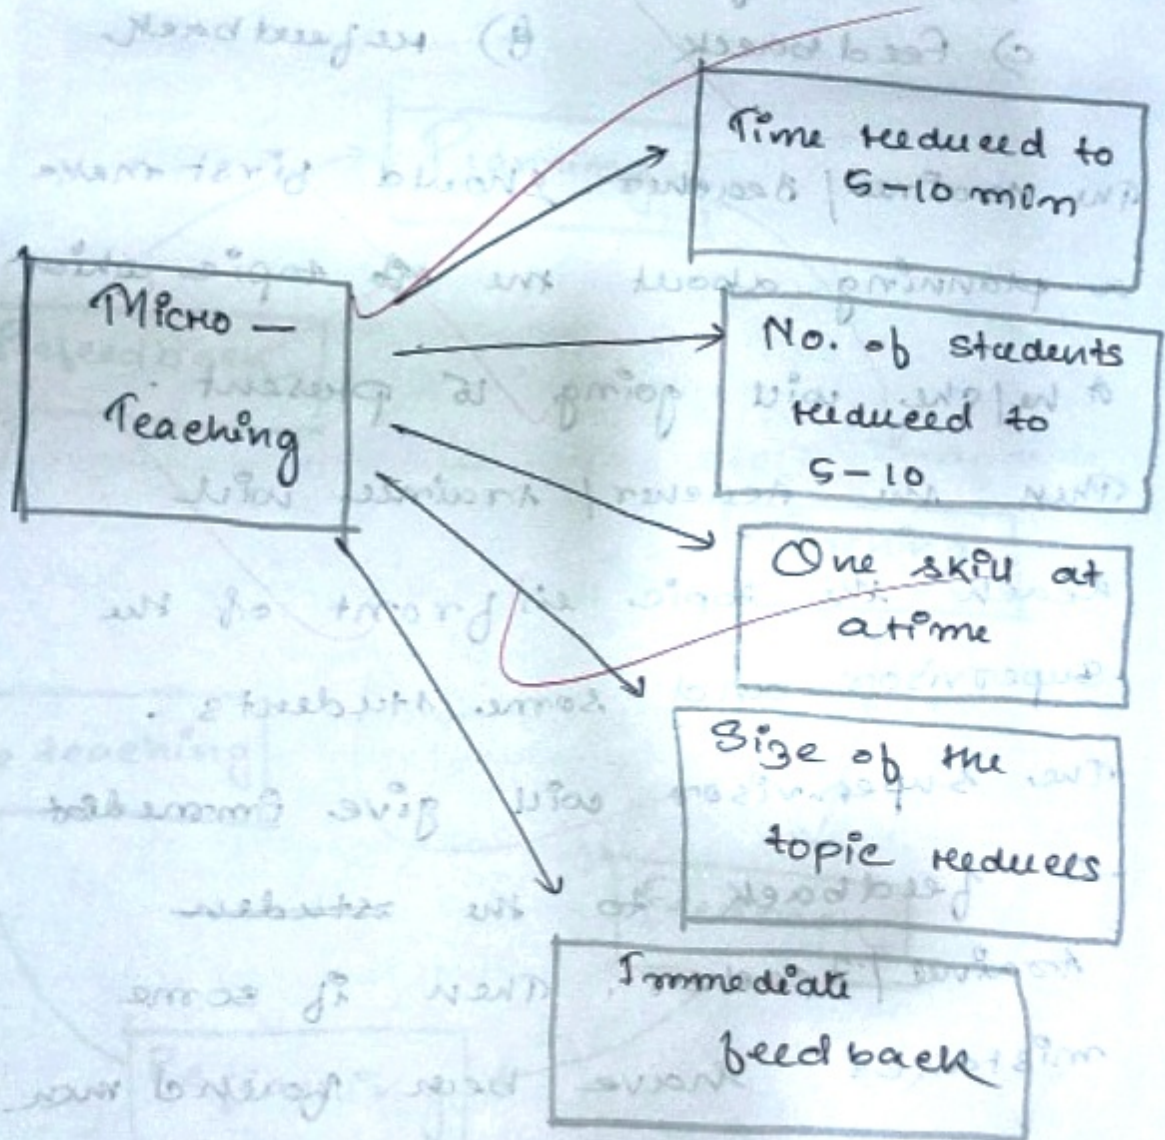 Micro –
Teaching
Time reduced to
5-10 min
No. of students
reduced to
5-10
One skill at
a time
Size of the
topic reduces
Immediate
feedback